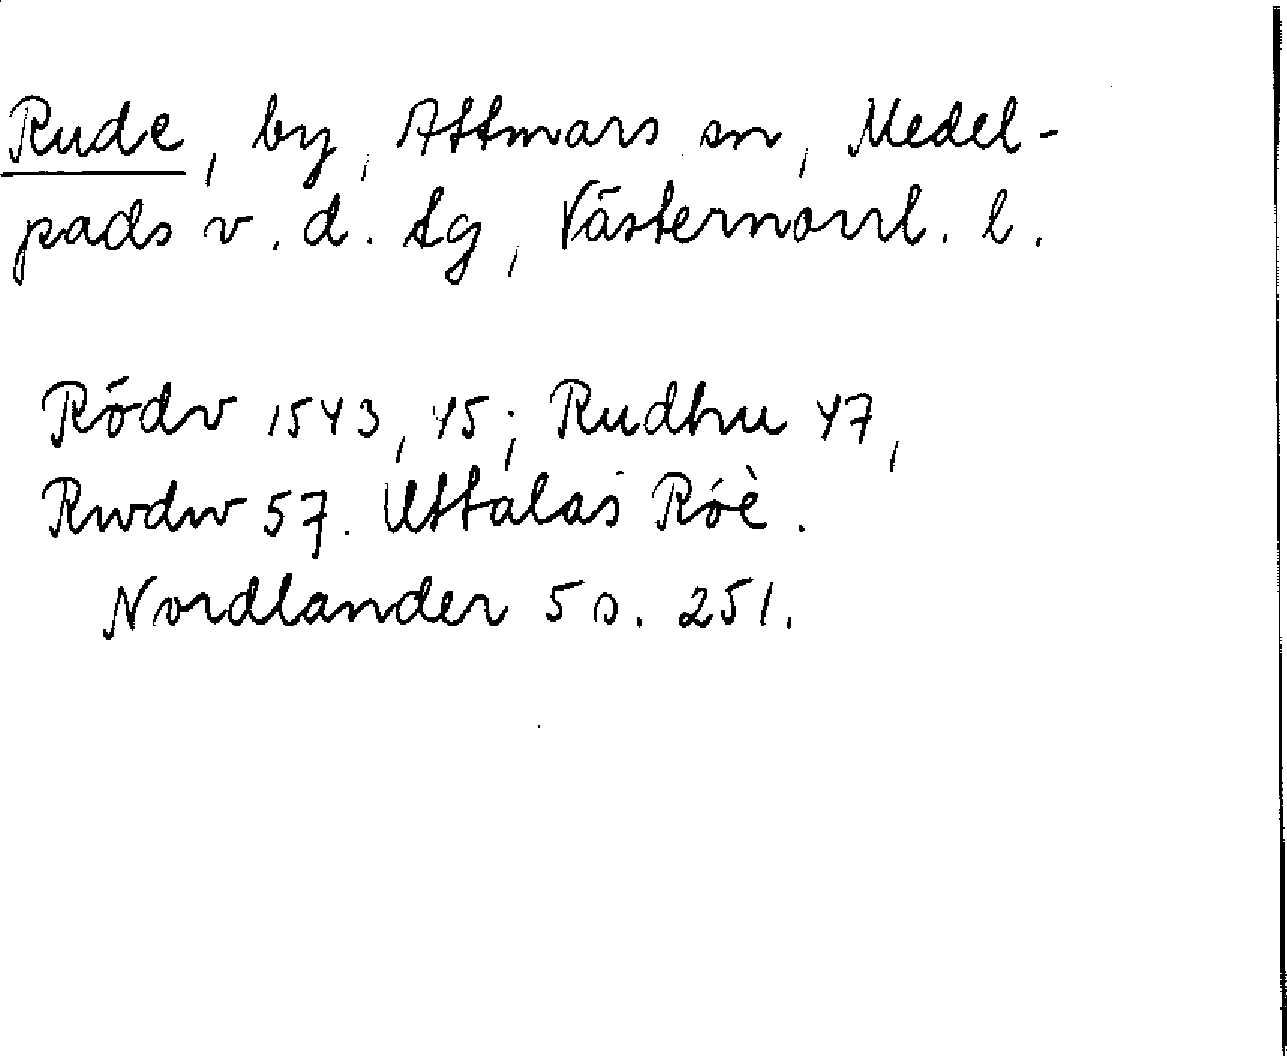 Rude, by, Attmars sn, Medel-
pads v. d. tg, Västernorrl. l.
Rödv 1543, 45; Rudhu 47,
Rwdw 57. Uttalas Róè.
Nordlander 5 s. 251.